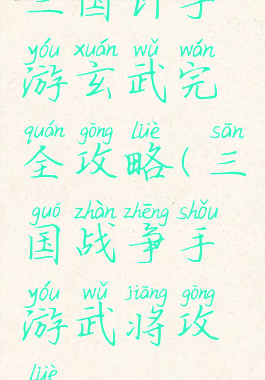 三国计手
yóu xuán wǔ wán
游玄武完
quán gōng lüè sān
全攻略(三
guó zhàn zhēng shǒu
国战争手
yóu wǔ jiāng gōng
游武将攻
lüè